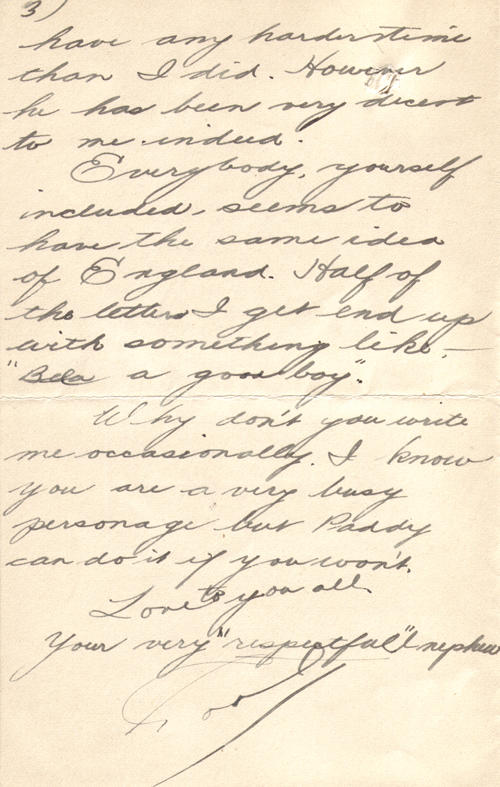 3)
have any harder time
than I did. However
he has been very decent
to me indeed.
Everybody, yourself
included, seems to
have the same idea
of England. Half of
the letters I get end up
with something like, —
"Bea a good boy".
Why don't you write
me occasionally. I know
you are a very busy
personage but Paddy
can do it if you won't.
Love to you all.
Your very "respectful" nephew